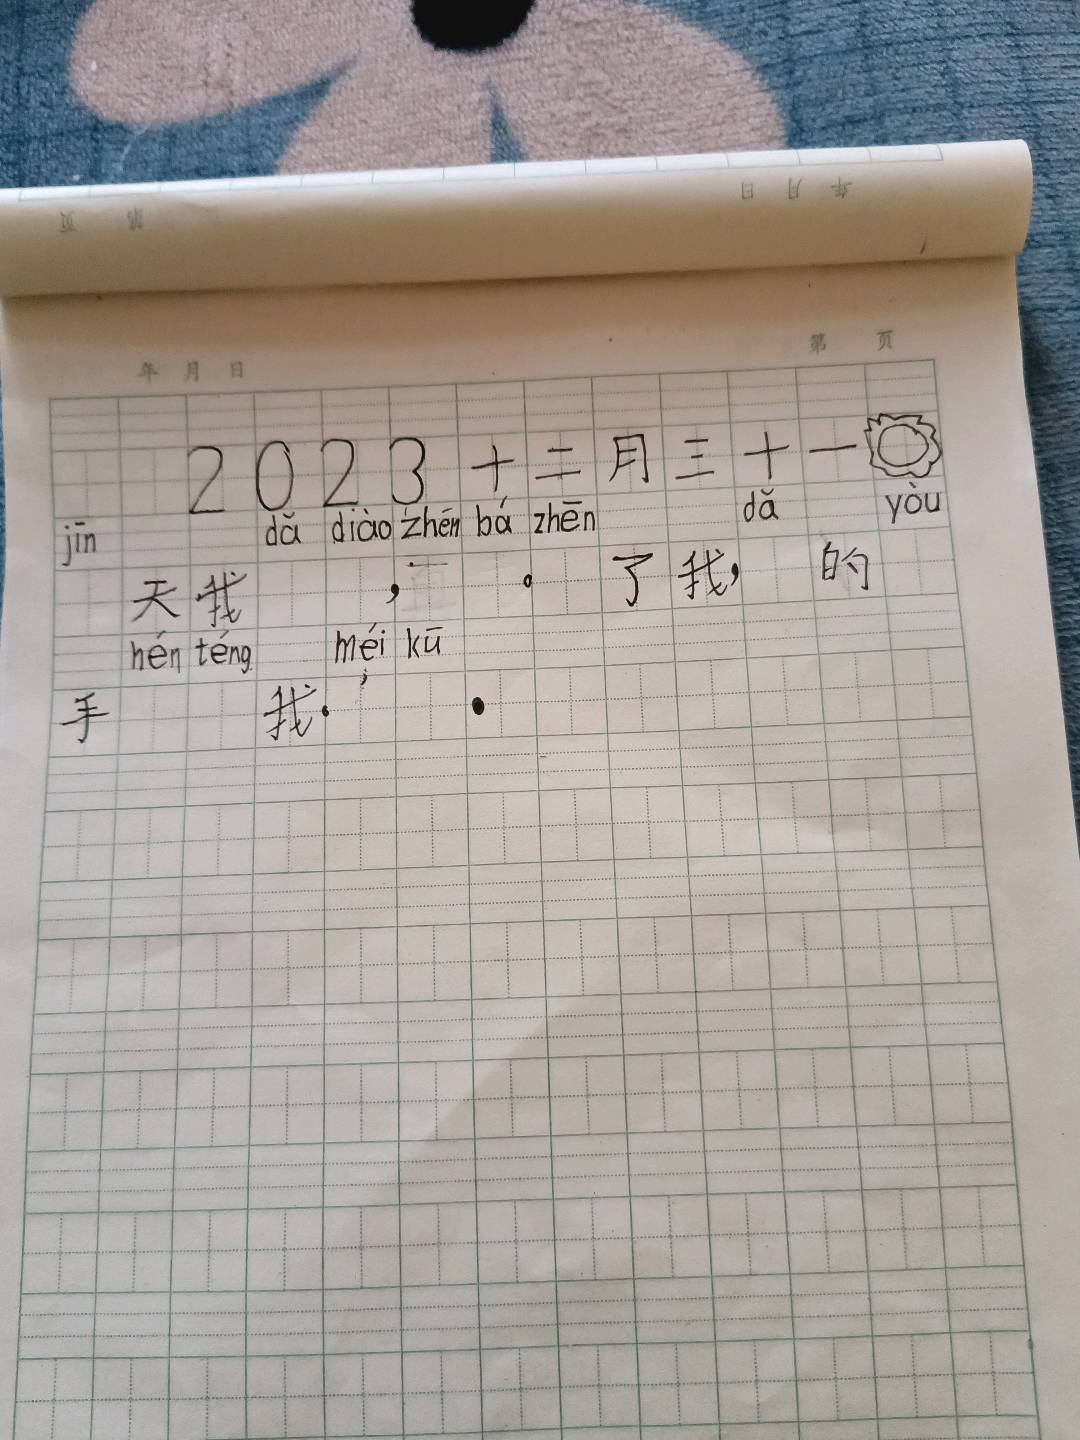 页 第 日 月 年
年 月 日 第 页
2023 十二月三十一
jīn dǎ diào zhēn bá zhēn dǎ yòu
天我 , 。 了我, 的
hén téng méi kū
手 我. , .